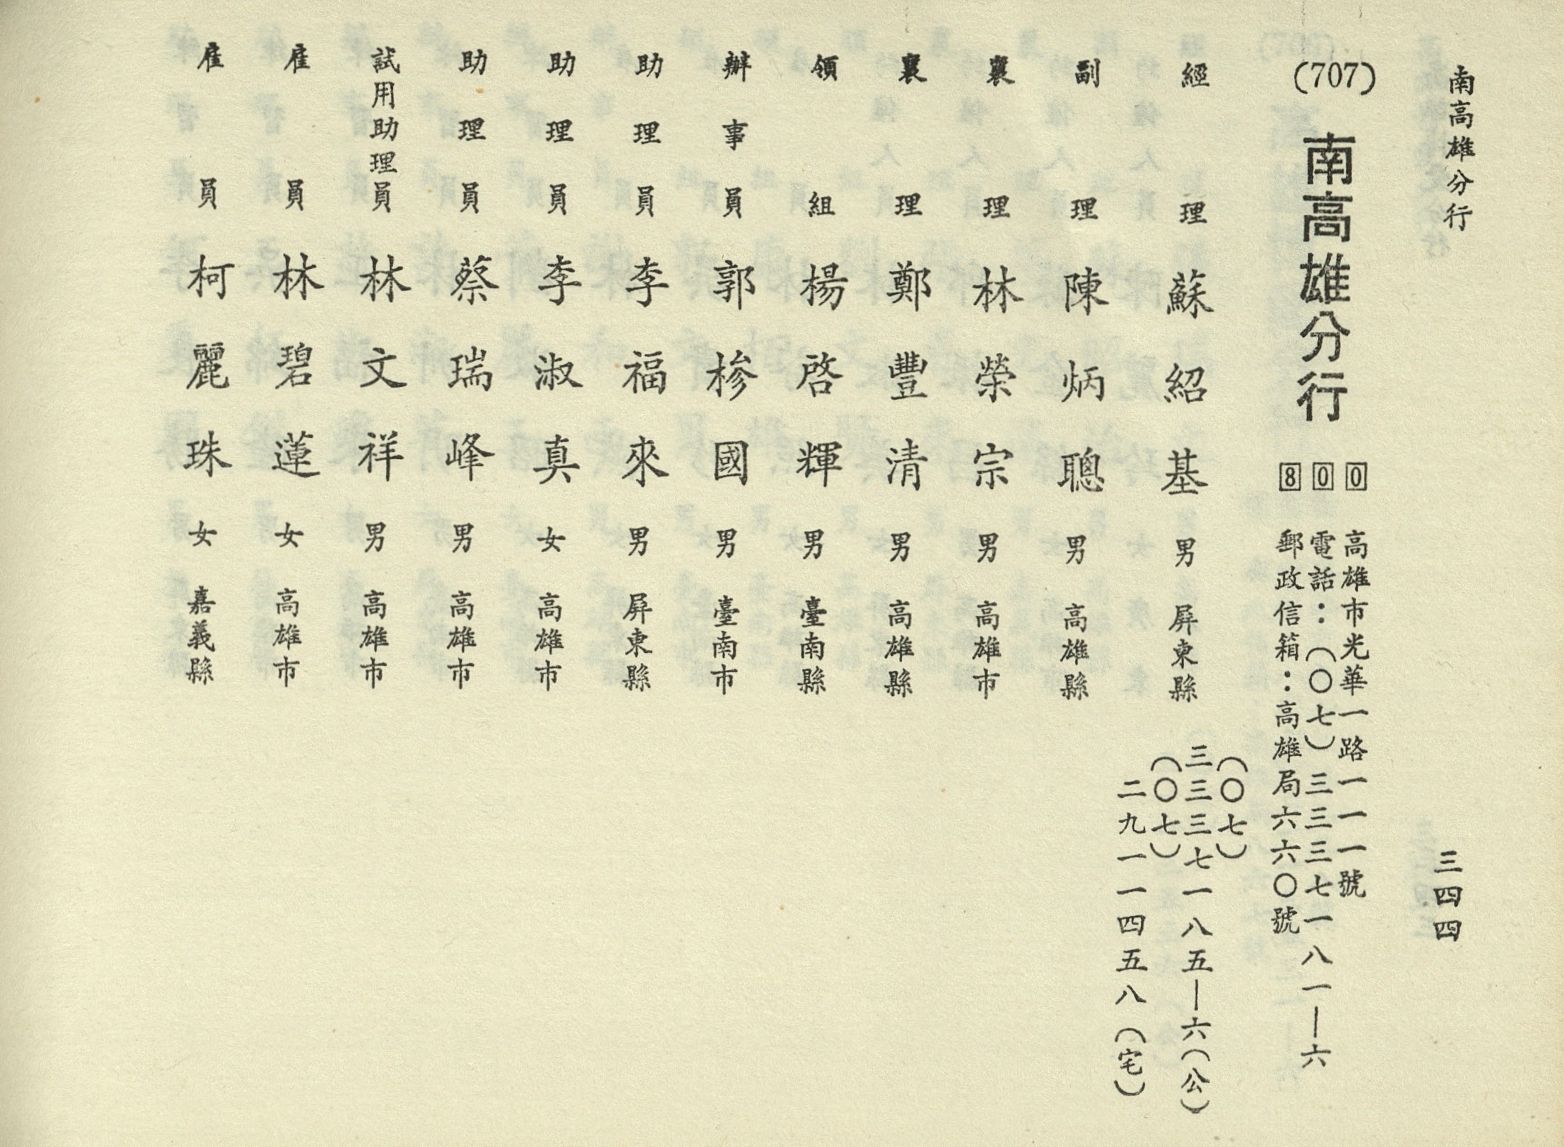 南高雄分行
三四四
(707)
南高雄分行
800
高雄市光華一路一一一號
電話：（〇七）三三三七一八一—六
郵政信箱：高雄局六六〇號
經理 蘇紹基 男 屏東縣
（〇七）
三三三七一八五—六（公）
（〇七）
二九一一四五八（宅）
副理 陳炳聰 男 高雄縣
襄理 林榮宗 男 高雄市
襄理 鄭豐清 男 高雄縣
領組 楊啓輝 男 臺南縣
辦事員 郭槮國 男 臺南市
助理員 李福來 男 屏東縣
助理員 李淑真 女 高雄市
助理員 蔡瑞峰 男 高雄市
試用助理員 林文祥 男 高雄市
雇員 林碧蓮 女 高雄市
雇員 柯麗珠 女 嘉義縣